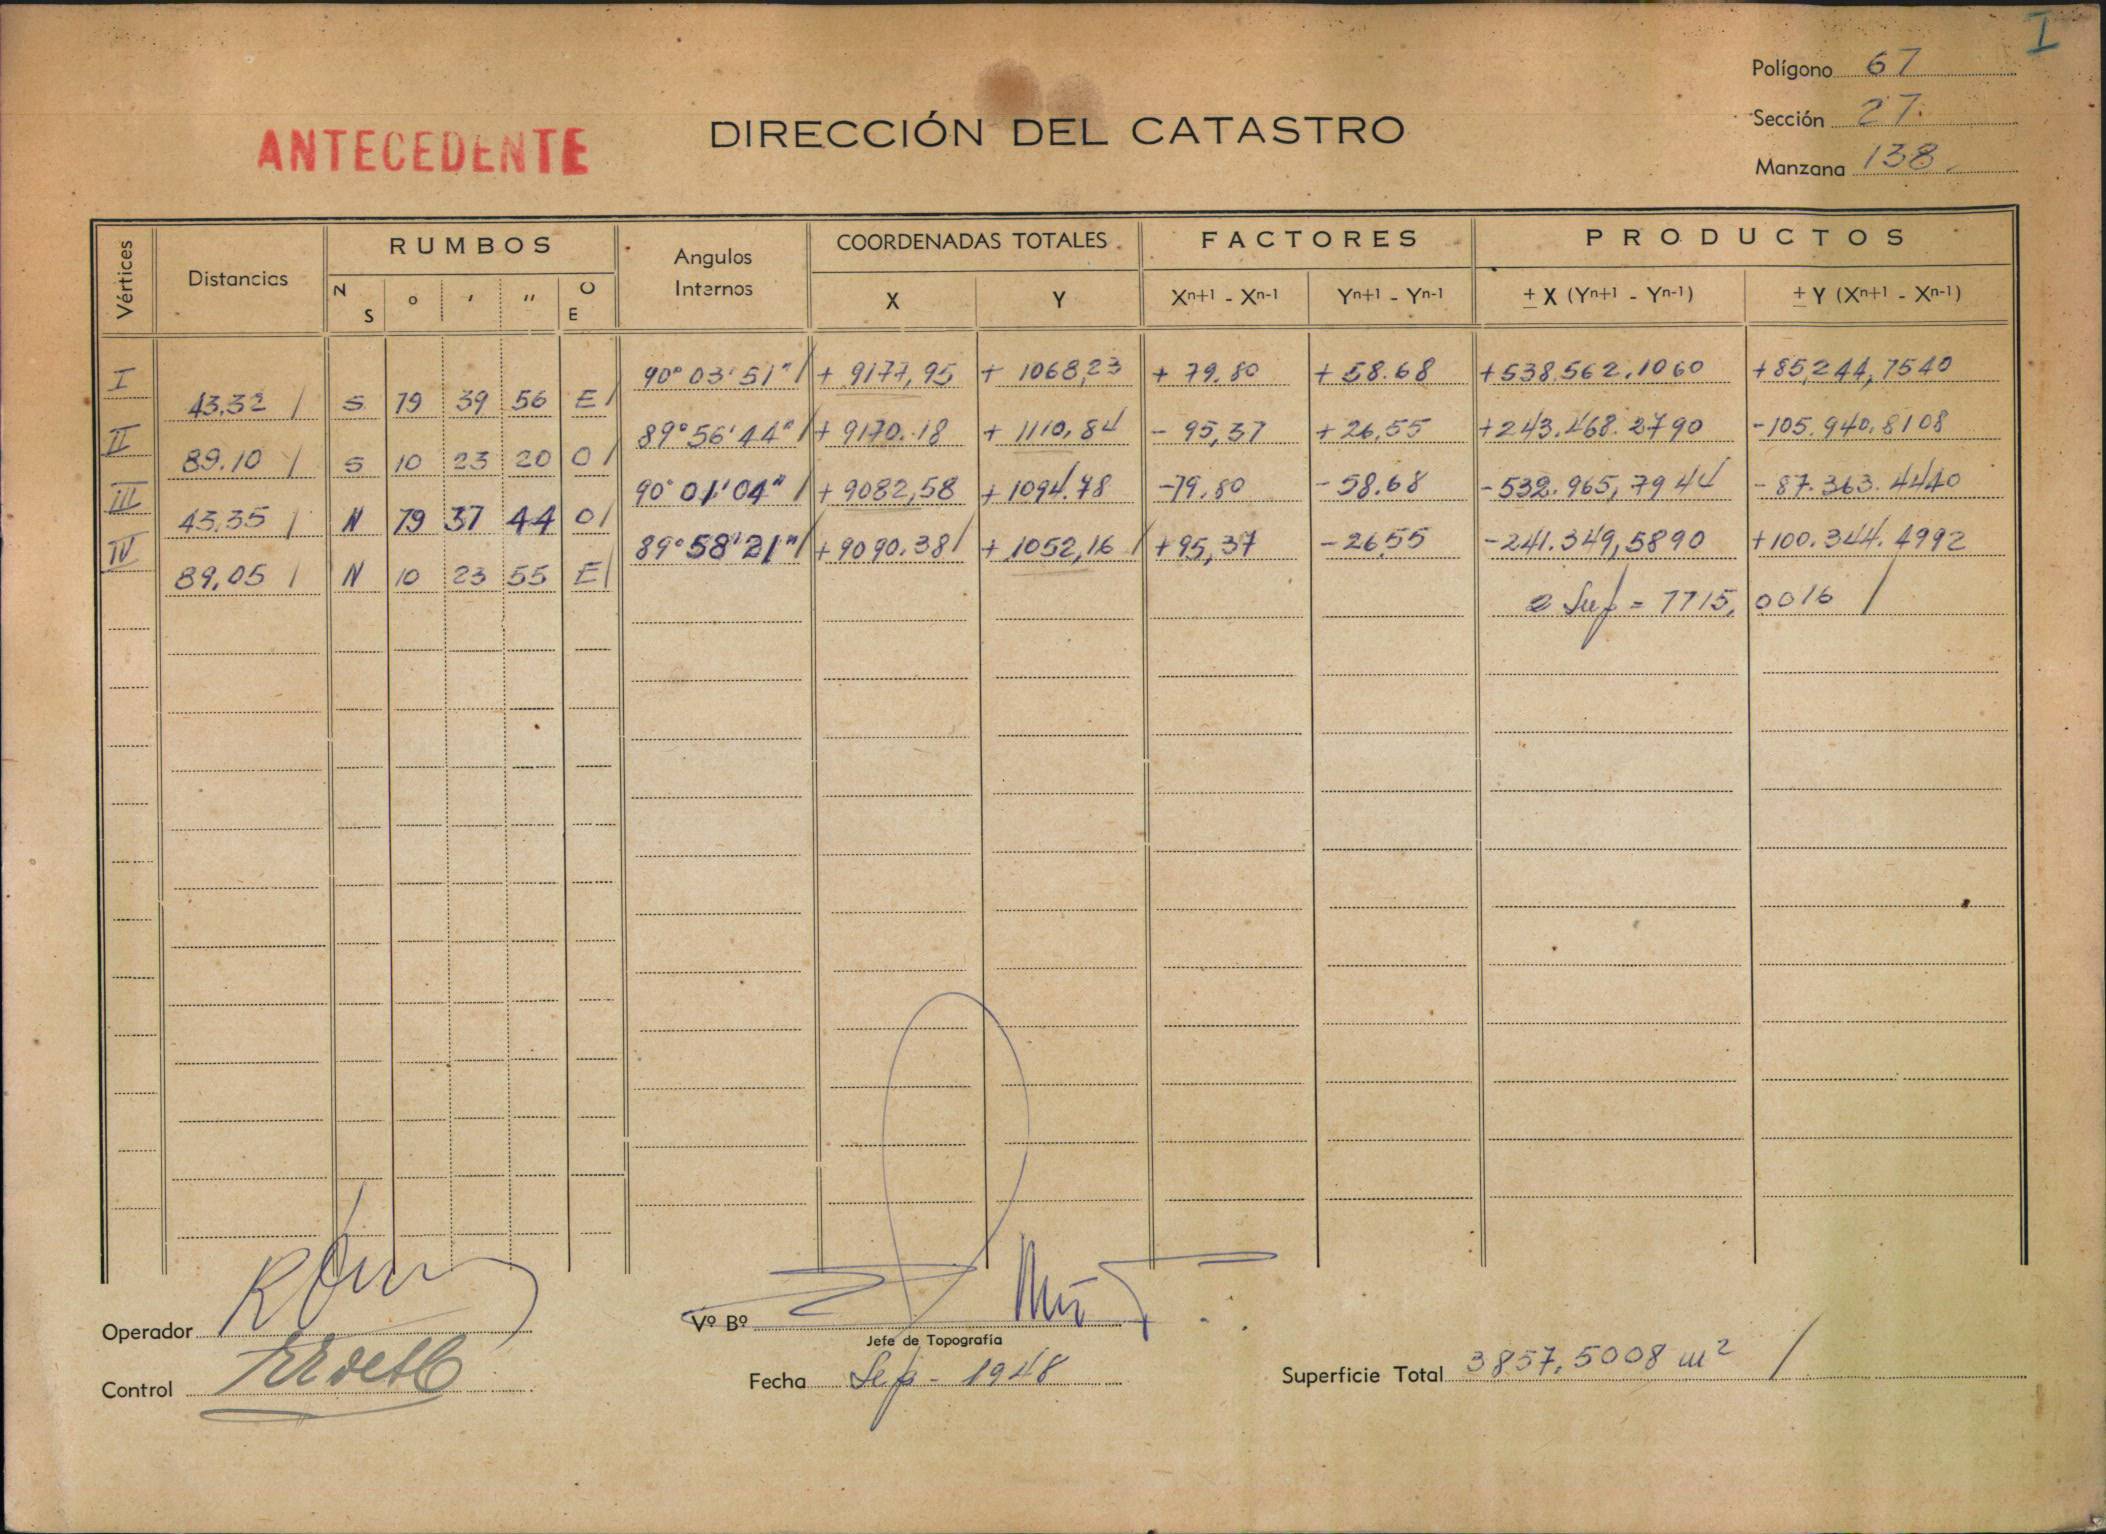 I
Polígono 67
Sección 27.
Manzana 138.
ANTECEDENTE
DIRECCIÓN DEL CATASTRO
Vértices Distancias RUMBOS Angulos Internos COORDENADAS TOTALES FACTORES PRODUCTOS
N S ° ' '' O E X Y Xn+1 - Xn-1 Yn+1 - Yn-1 ± X (Yn+1 - Yn-1) ± Y (Xn+1 - Xn-1)
I 90° 03' 51" + 9177,95 + 1068,23 + 79.80 + 58.68 +538.562.1060 +85,244,7540
43.32 S 79 39 56 E
II 89° 56' 44" + 9170.18 + 1110,84 - 95,37 + 26,55 +243.468.2790 -105.940.8108
89.10 S 10 23 20 O
III 90° 01' 04" + 9082,58 + 1094.78 -79.80 -58.68 -532.965,7944 -87.363.4440
43.35 N 79 37 44 O
IV 89° 58' 21" +9090.38 + 1052,16 +95,37 -26,55 -241.349,5890 +100.344.4992
89,05 N 10 23 55 E
2 Sup = 7715,0016
Operador
Vº Bº
Jefe de Topografía
Control
Fecha Sep - 1948
Superficie Total 3857,5008 m²